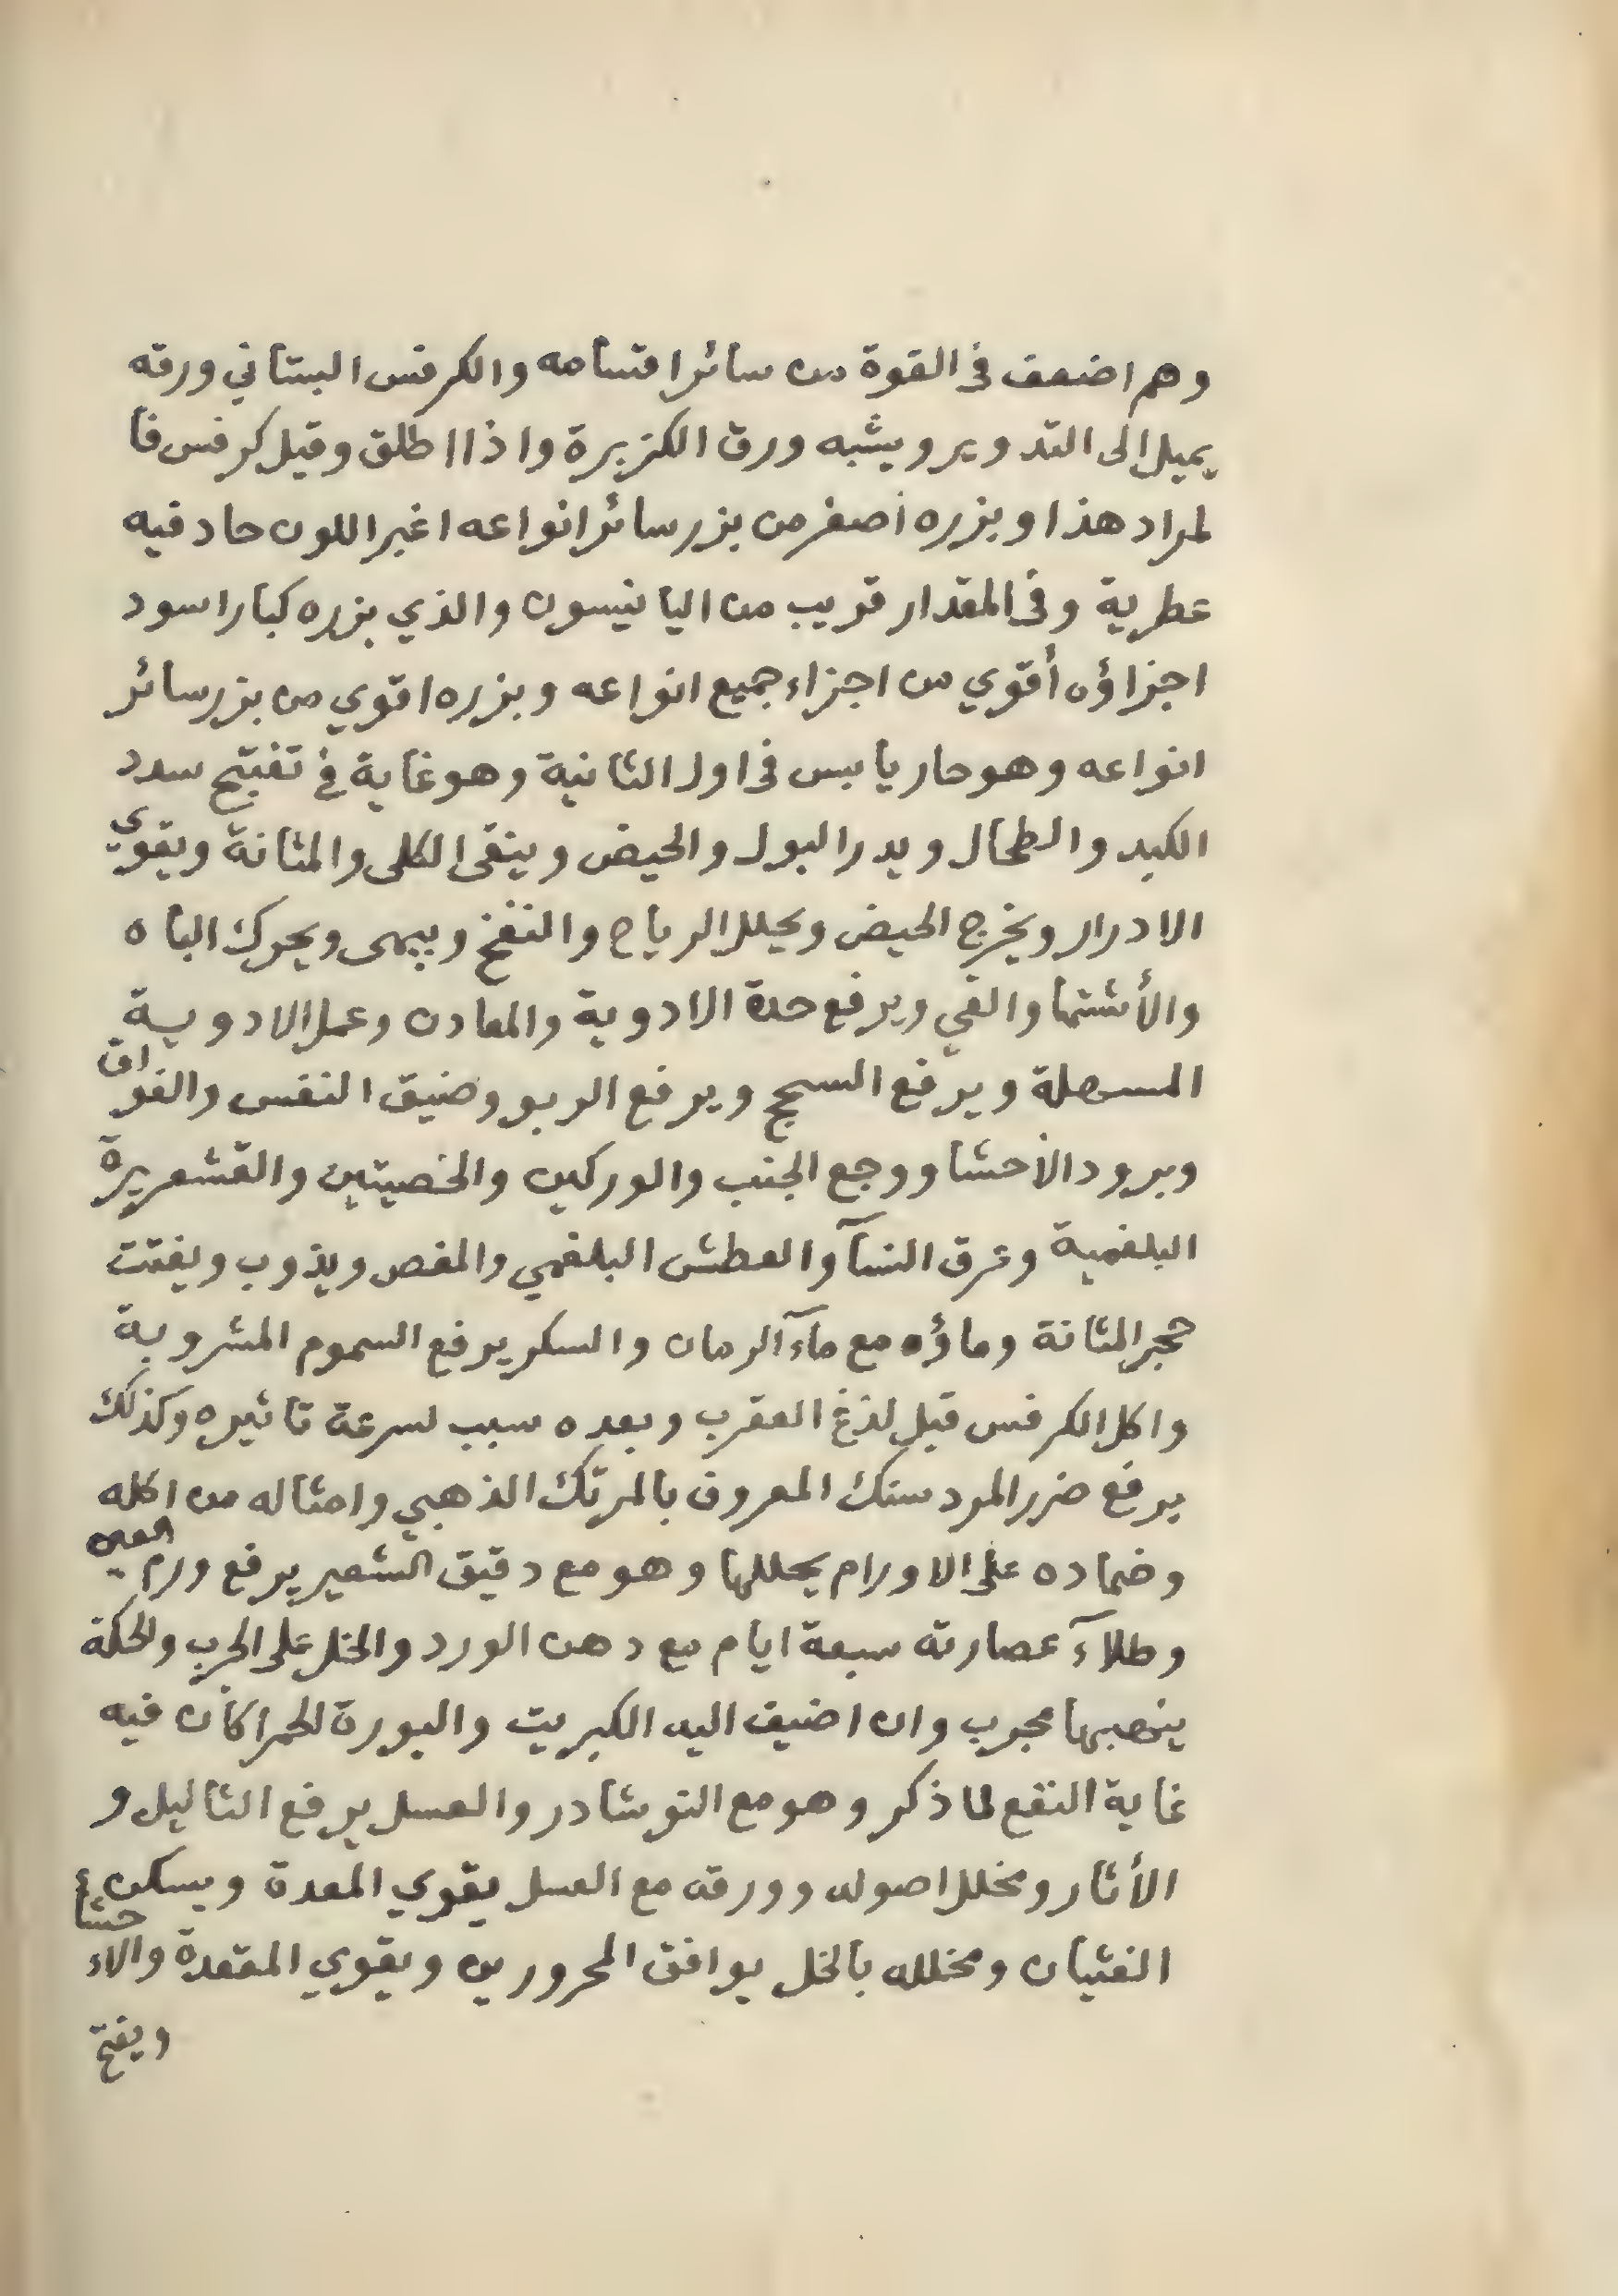 وهم اضعف في القوة من سائر اقسامه والكرفس البستاني ورقه
يميل الى التدوير ويشبه ورق الكزبرة واذا اطلق وقيل كرفس فا
لمراد هذا وبزره أصغر من بزر سائر انواعه اغبر اللون حاد فيه
عطرية وفي المقدار قريب من اليانيسون والذي بزره كبار اسود
اجزاؤه أقوي من اجزاء جميع انواعه وبزره اقوي من بزر سائر
انواعه وهو حار يابس في اول الثانية وهو غاية في تفتيح سدد
الكبد والطحال ويدر البول والحيض وينقى الكلى والمثانة ويقوي
الادرار ويخرج الحيض ويحلل الرياح والنفخ ويبهى ويحرك الباه
والأشتها والقي ويرفع حدة الادوية والمعادن وعمل الادوية
المسهلة ويرفع السحج ويرفع الربو وضيق النفس والفواق
وبرود الأحشا ووجع الجنب والوركين والخصيتين والقشعريرة
البلغمية وعرق النسآ والعطش البلغمي والمغص ويذوب ويفتت
حجر المثانة وماؤه مع مآء الرمان والسكر يرفع السموم المشروبة
واكل الكرفس قبل لذغ العقرب وبعده سبب لسرعة تاثيره وكذلك
يرفع ضرر المردسنك المعروف بالمرتك الذهبي وامثاله من اكله
وضماده على الاورام يحللها وهو مع دقيق الشعير يرفع ورم العين
وطلآء عصارته سبعة ايام مع دهن الورد والخل على الجرب والحكة
يذهبها مجرب وان اضيف اليه الكبريت والبورة الحمرا كان فيه
غاية النفع لما ذكر وهو مع النوشادر والعسل يرفع الثاليل و
الأثار ومخلل اصوله وورقه مع العسل يقوي المعدة ويسكن
الغثيان ومخلله بالخل يوافق المحرورين ويقوي المقعدة والاحشا
ويفتح